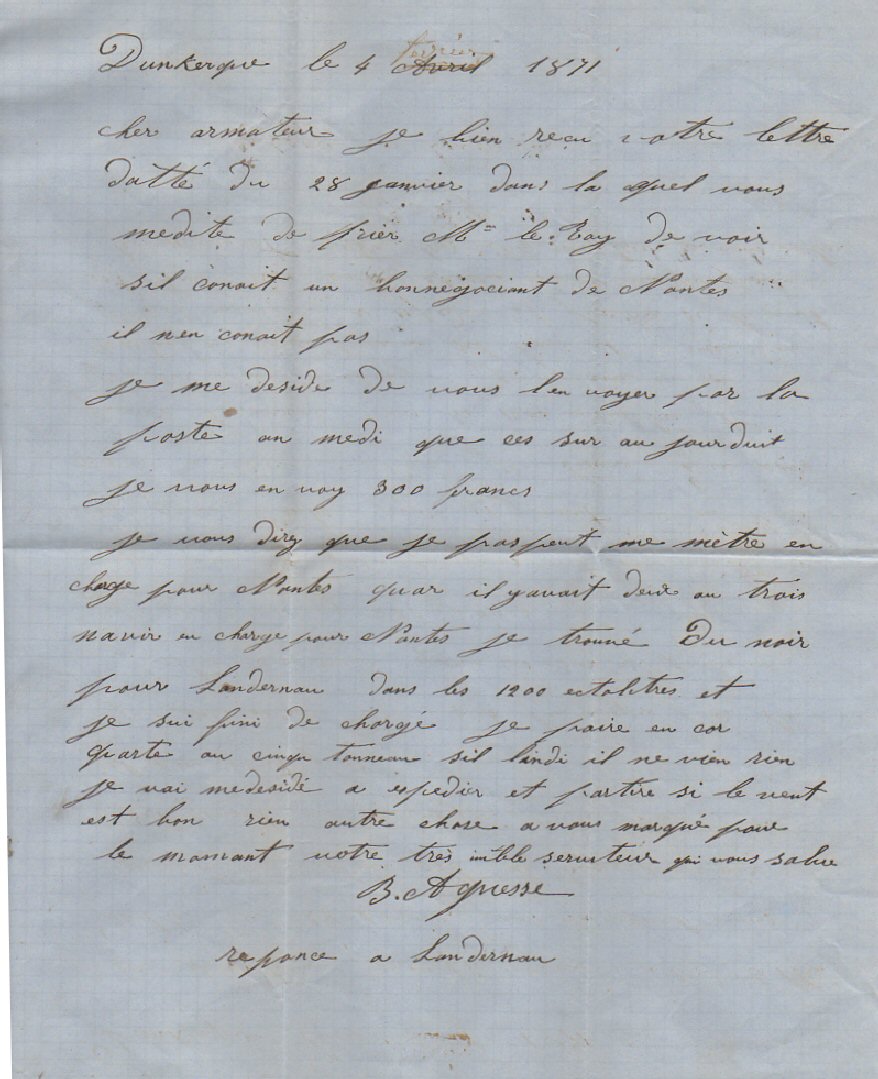 Dunkerque le 4 Avril février 1871
cher armateur je bien recu votre lettre
datté du 28 janvier dans la quel vous
medite de prier Mr le Roy de voir
sil conait un bonnegociant de Nantes
il nen conait pas
je me deside de vous len voyer par la
poste on medi que ces sur au jourduit
je vous en voy 300 francs
je vous diray que je paspeut me mètre en
charge pour Nantes quar il yavait deux ou trois
navir en charge pour Nantes je trouné Du noir
pour Landernau dans les 1200 ectolitres et
je sui fini de chargé je paire en cor
quarte ou cinqu tonneau sil lindi il ne vien rien
je vai medesidé a expedier et partire si le vent
est bon rien autre chose a vous marqué pour
le momant votre très imble serviteur qui vous salue
B. Aguesse
reponce a Landernau